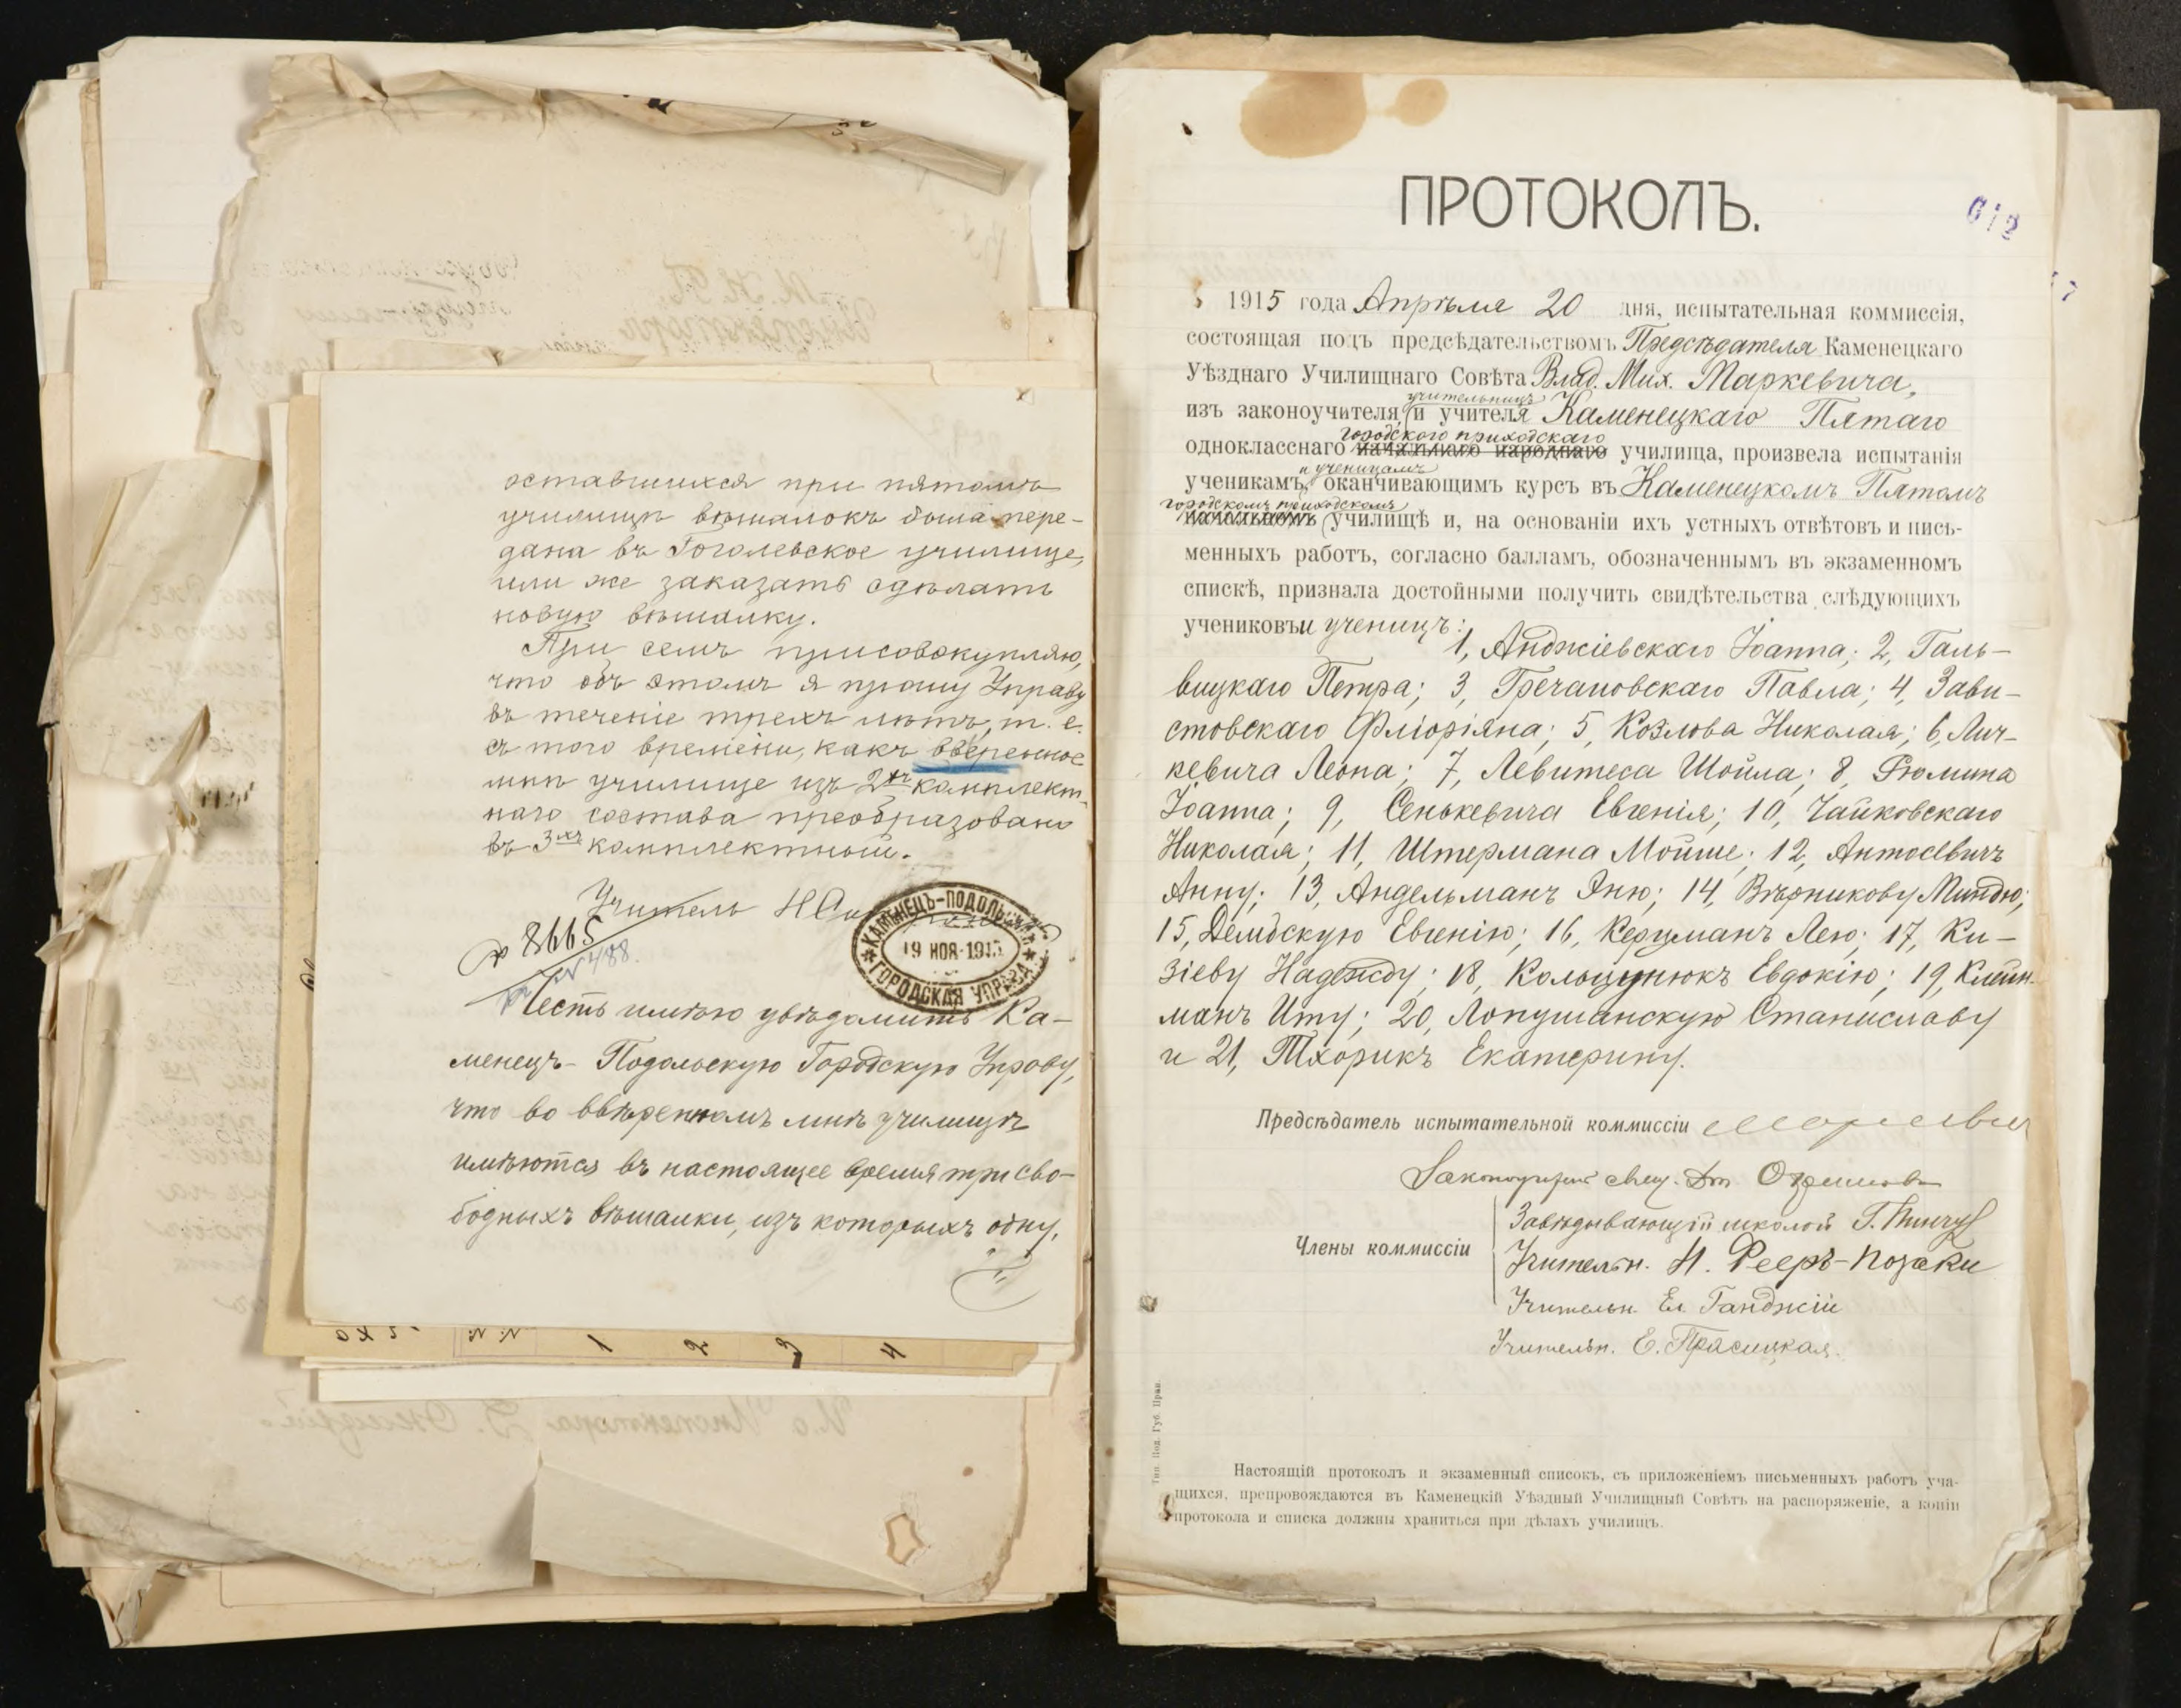 оставшихся при пятомъ
училищѣ вѣшалокъ была пере-
дана въ Гоголевское училище,
или же заказать сдѣлать
новую вѣшалку.
При семъ присовокупляю,
что объ этомъ я прошу Управу
въ теченіе трехъ лѣтъ, т. е.
съ того времени, какъ ввѣренное
мнѣ училище изъ 2хъ комплект-
наго состава преобразовано
въ 3хъ комплектный.
Учитель
8665
№ 488.
КАМЕНЕЦЪ-ПОДОЛЬСКАЯ
19 НОЯ 1915
ГОРОДСКАЯ УПРАВА
Честь имѣю увѣдомить Ка-
менецъ-Подольскую Городскую Управу,
что во ввѣренномъ мнѣ училищѣ
имѣются въ настоящее время три сво-
бодныхъ вѣшалки, изъ которыхъ одну,
ПРОТОКОЛЪ.
612
1915 года Апрѣля 20 дня, испытательная коммиссія,
состоящая подъ предсѣдательствомъ Предсѣдателя Каменецкаго
Уѣзднаго Училищнаго Совѣта Влад. Мих. Маркевича,
учительницъ
изъ законоучителя, и учителя Каменецкаго Пятаго
городского приходскаго
одноклассного начальнаго народнаго училища, произвела испытанія
и ученицамъ
ученикамъ, оканчивающимъ курсъ въ Каменецкомъ Пятомъ
городскомъ приходскомъ
училищѣ и, на основаніи ихъ устныхъ отвѣтовъ и пись-
менныхъ работъ, согласно балламъ, обозначеннымъ въ экзаменномъ
спискѣ, признала достойными получить свидѣтельства слѣдующихъ
учениковъ и ученицъ:
1, Анджіевскаго Іоанна; 2, Галь-
вицкаго Петра; 3, Гречановскаго Павла; 4, Зави-
стовскаго Фліоріяна; 5, Козлова Николая; 6, Лич-
кевича Леона; 7, Левитеса Шойла; 8, Рюмина
Іоанна; 9, Сенькевича Евгенія; 10, Чайковскаго
Николая; 11, Штермана Мойше; 12, Антосевичъ
Анну; 13, Андельманъ Эню; 14, Вѣрникову Миндю;
15, Демдскую Евгенію; 16, Керцманъ Лею; 17, Ки-
зіеву Надежду; 18, Кольцунюкъ Евдокію; 19, Клейн-
манъ Иту; 20, Лопушанскую Станиславу
и 21, Тхорикъ Екатерину.
Предсѣдатель испытательной коммиссіи
Законоучит. свящ.
Завѣдывающій школой Г.
Члены коммиссіи
Учительн. Н. Рееръ-Позаки
Учительн. Ел Ганджій
Учительн. Е. Прасицкая.
Тип. Под. Губ. Прав.
Настоящій протоколъ и экзаменный списокъ, съ приложеніемъ письменныхъ работъ уча-
щихся, препровождаются въ Каменецкій Уѣздный Училищный Совѣтъ на распоряженіе, а копіи
протокола и списка должны храниться при дѣлахъ училищъ.